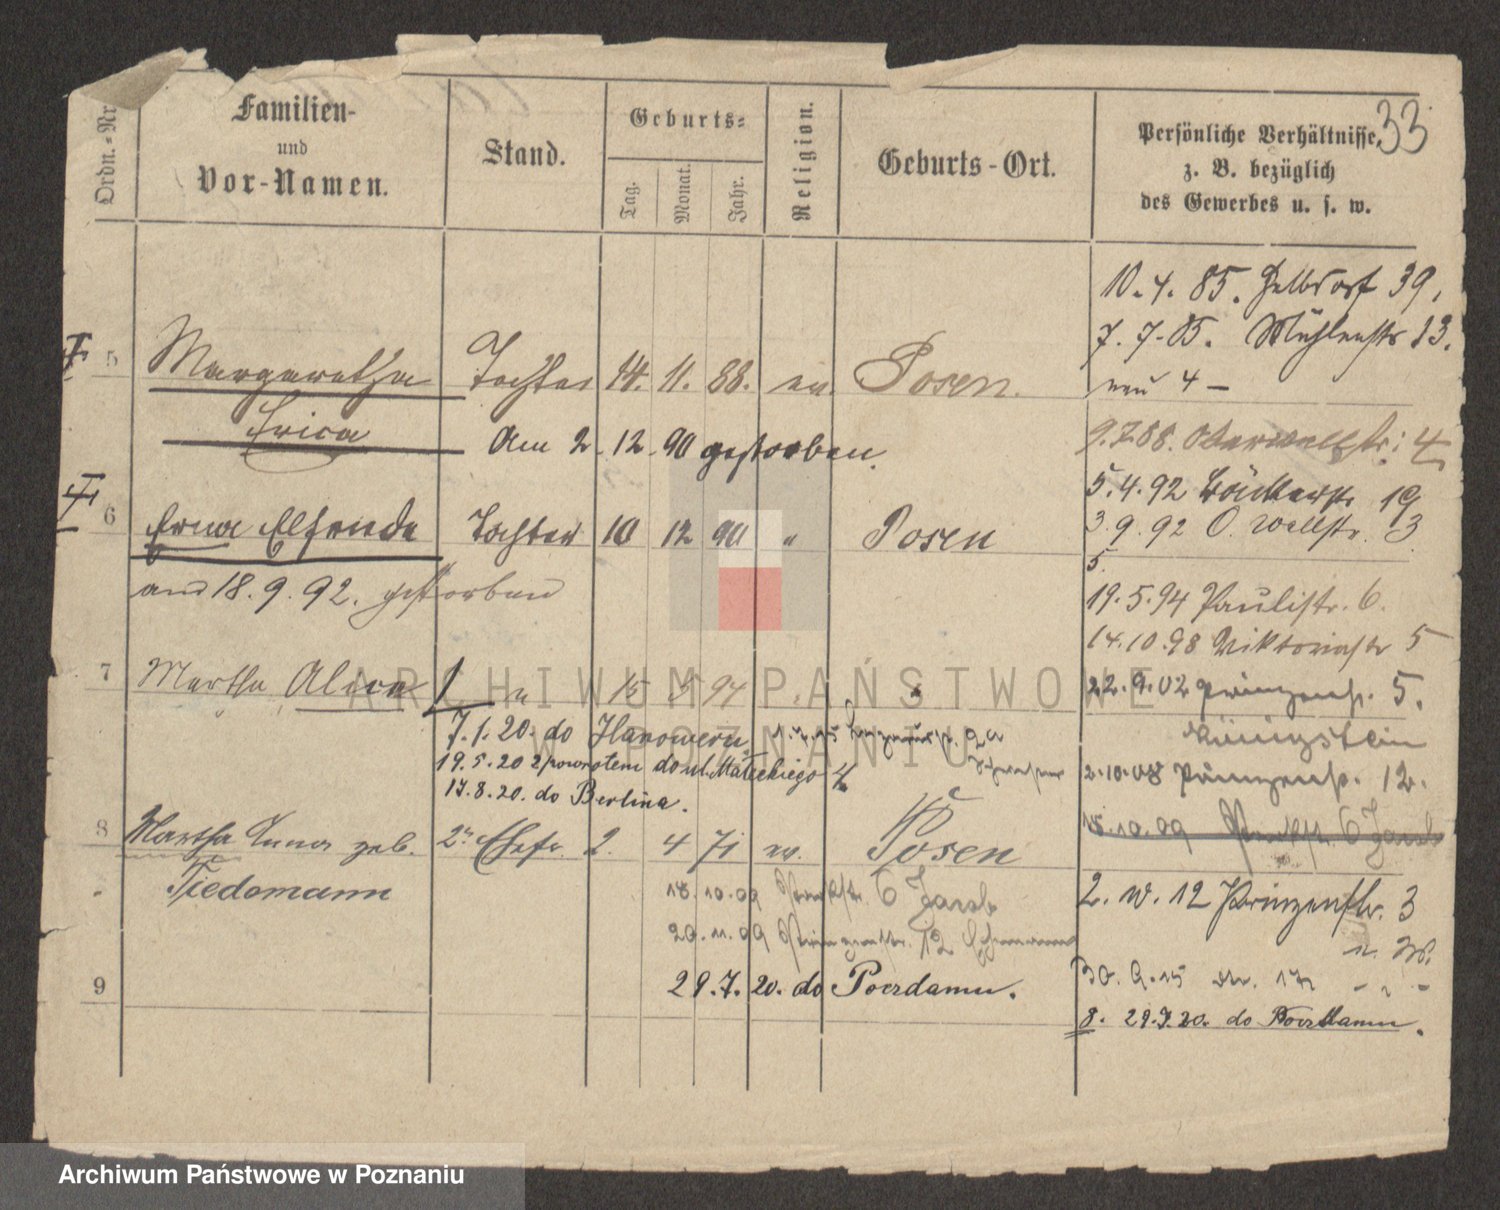 33
Ordn.-Nr.
Familien-
und
Vor-Namen.
Stand.
Geburts-
Tag.
Monat.
Jahr.
Religion.
Geburts-Ort.
Persönliche Verhältnisse,
z. B. bezüglich
des Gewerbes u. s. w.
10.4.85. 39,
7.7.85. Mühlenstr 13.
neu 4 —
5 Margaretha Tochter 14. 11. 88. ev. Posen.
Erica Am 2.12.90 gestorben.
9.7.88. Oberwallstr: 4
5.4.92 Bäckerstr 19
6 Erna Elfriede Tochter 10 12 90 " Posen
3.9.92 O. Wallstr. 3
5.
am 18.9.92. gestorben
19.5.94 Paulistr. 6.
14.10.98 Viktoriastr 5
7 Martha Alice " 15 5 94 "
22.9.02 Prinzenstr. 5.
Königstein
7.1.20. do Hanoweru
19.5.20 z powrotem do ul. Małeckiego 4
17.8.20. do Berlina.
2.10.08 Prinzenstr. 12.
15.10.09 6 Jacob
8 Martha Anna geb. 2te Ehefr. 2. 4 71 ev. Posen
Tiedemann
18.10.09 6 Jacob
20.11.09 Prinzenstr. 12
2. IV. 12 Prinzenstr. 3
n. W.
30.9.15 17
9
29.7.20. do Poczdamu.
8. 29.7.20. do Poczdamu.
ARCHIWUM PAŃSTWOWE
W POZNANIU
Archiwum Państwowe w Poznaniu